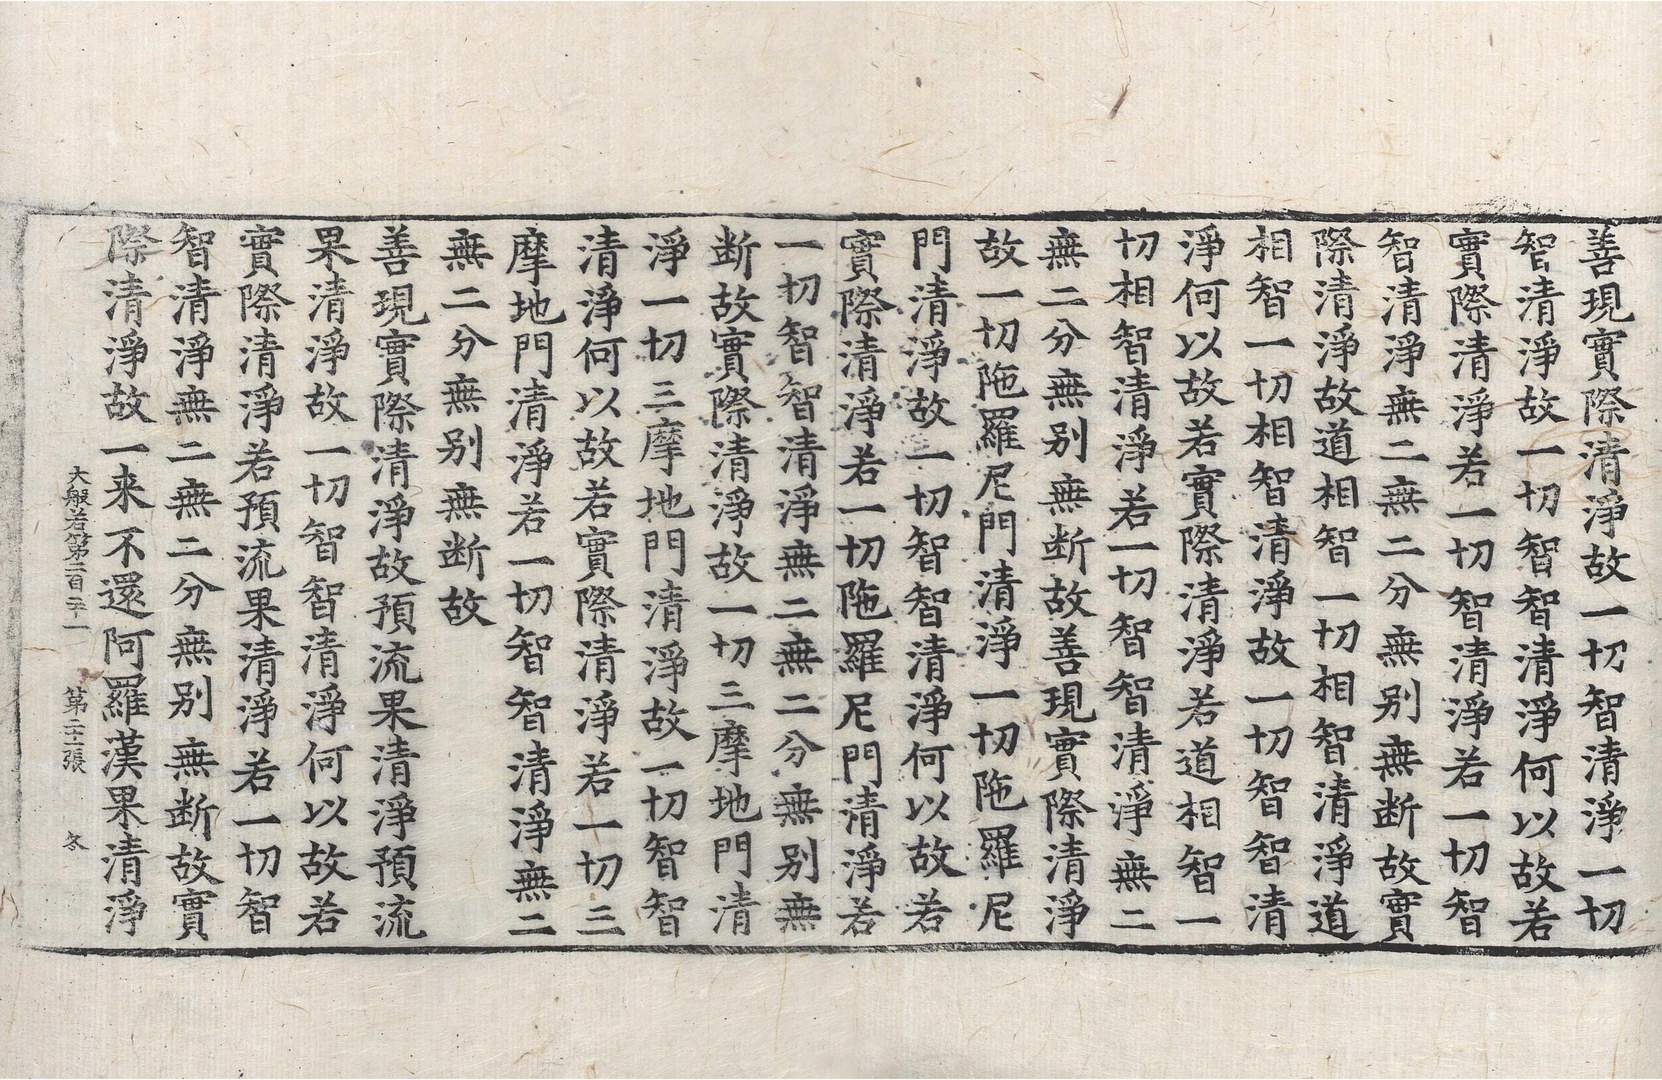 善現實際清淨故一切智清淨一切
智清淨故一切智智清淨何以故若
實際清淨若一切智清淨若一切智
智清淨無二無二分無别無断故實
際清淨故道相智一切相智清淨道
相智一切相智清淨故一切智智清
淨何以故若實際清淨若道相智一
切相智清淨若一切智智清淨無二
無二分無别無断故善現實際清淨
故一切陁羅尼門清淨一切陁羅尼
門清淨故一切智智清淨何以故若
實際清淨若一切陁羅尼門清淨若
一切智智清淨無二無二分無别無
断故實際清淨故一切三摩地門清
淨一切三摩地門清淨故一切智智
清淨何以故若實際清淨若一切三
摩地門清淨若一切智智清淨無二
無二分無别無断故
善現實際清淨故預流果清淨預流
果清淨故一切智智清淨何以故若
實際清淨若預流果清淨若一切智
智清淨無二無二分無别無断故實
際清淨故一来不還阿羅漢果清淨
大般若第二百二十一 第二十一張 冬